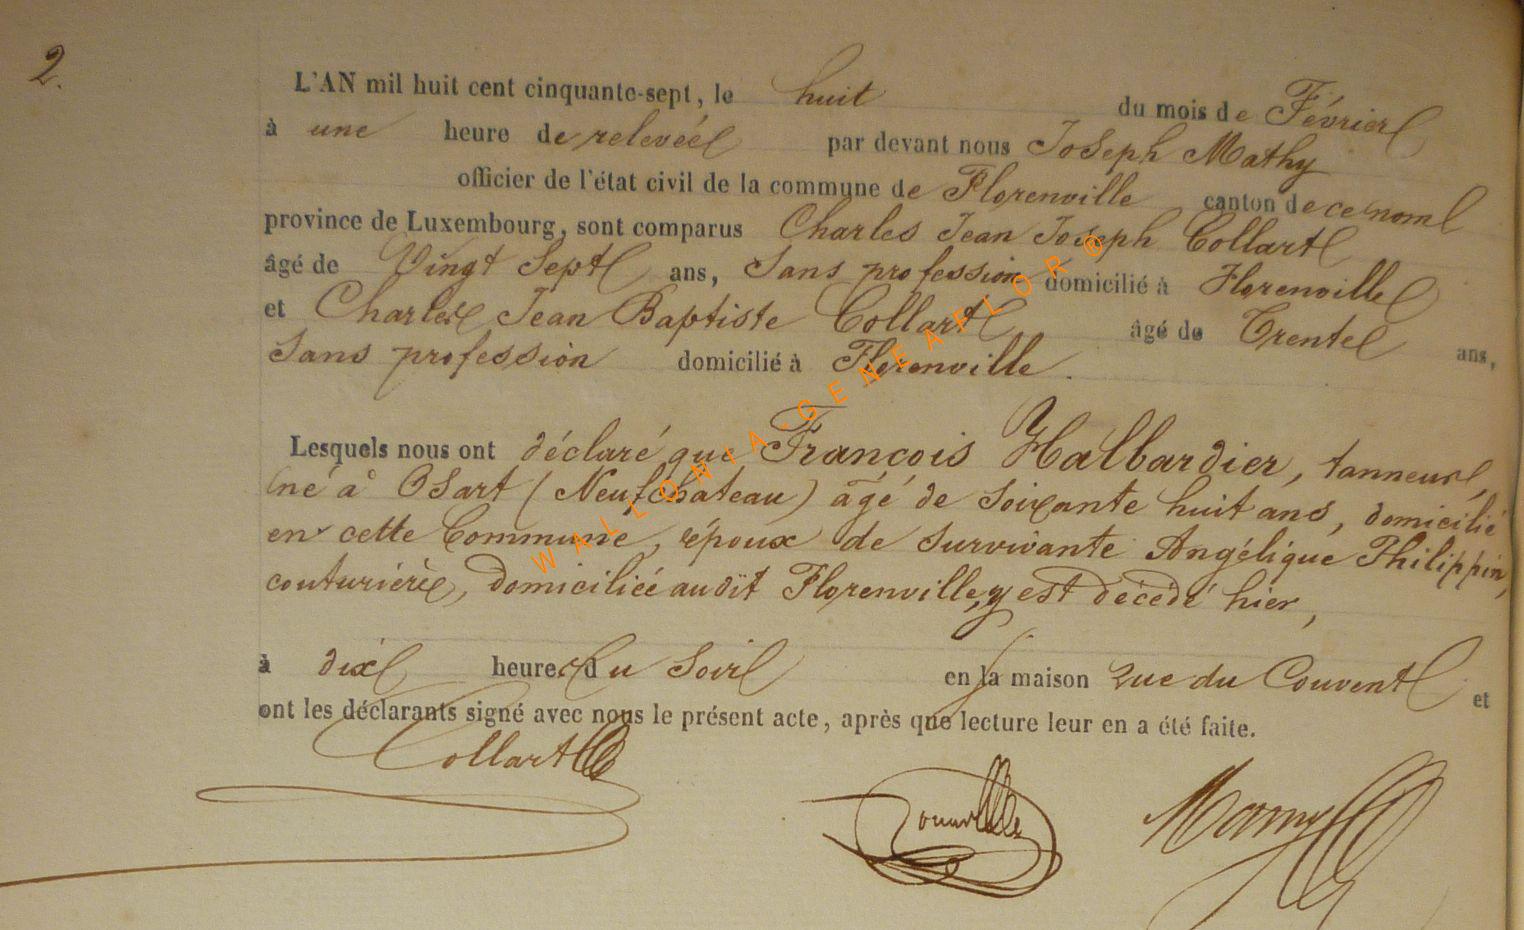 2.
L'AN mil huit cent cinquante-sept, le huit du mois de Février
à une heure de relevée par devant nous Joseph Mathy
officier de l'état civil de la commune de Florenville canton de ce nom
province de Luxembourg, sont comparus Charles Jean Joseph Collart
âgé de Vingt Sept ans, Sans profession domicilié à Florenville
et Charles Jean Baptiste Collart âgé de Trente ans,
Sans profession domicilié à Florenville.
Lesquels nous ont déclaré que François Halbardier, tanneur,
né à OSart (Neufchateau) âgé de Soixante huit ans, domicilié
en cette Commune, époux de Survivante Angélique Philippin,
couturiére, domiciliée audit Florenville, y est décédé hier,
à dix heures du Soir en la maison rue du Couvent et
ont les déclarants signé avec nous le présent acte, après que lecture leur en a été faite.
Collart
WALLONIA-GENEAFLOR®